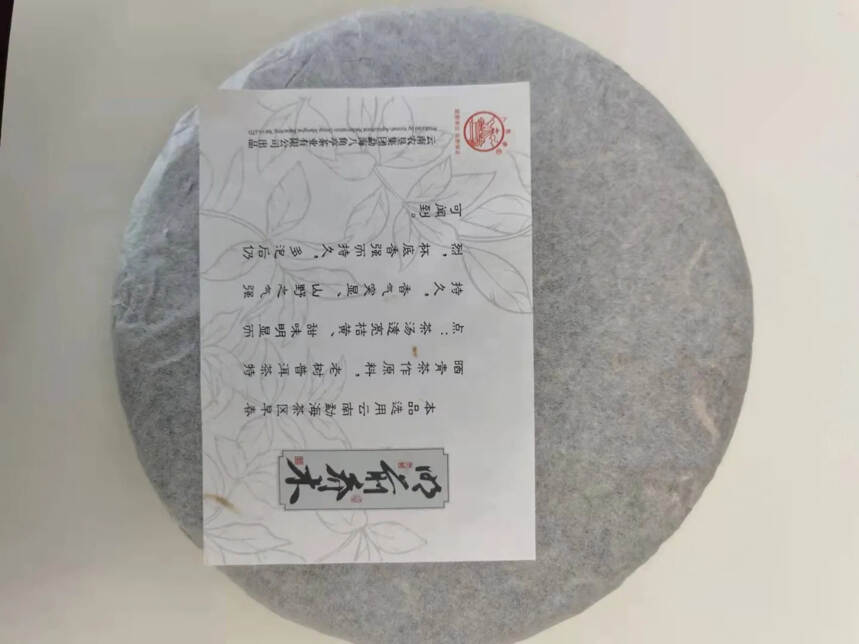 明前乔木
本品选用云南勐海茶区早春
晒青茶作原料，老树普洱茶特
点：茶汤透亮桔黄、甜味明显而
持久，香气突显、山野之气强
烈，杯底香强而持久，多泡后仍
可闻到。
云南农垦集团勐海八角亭茶业有限公司出品